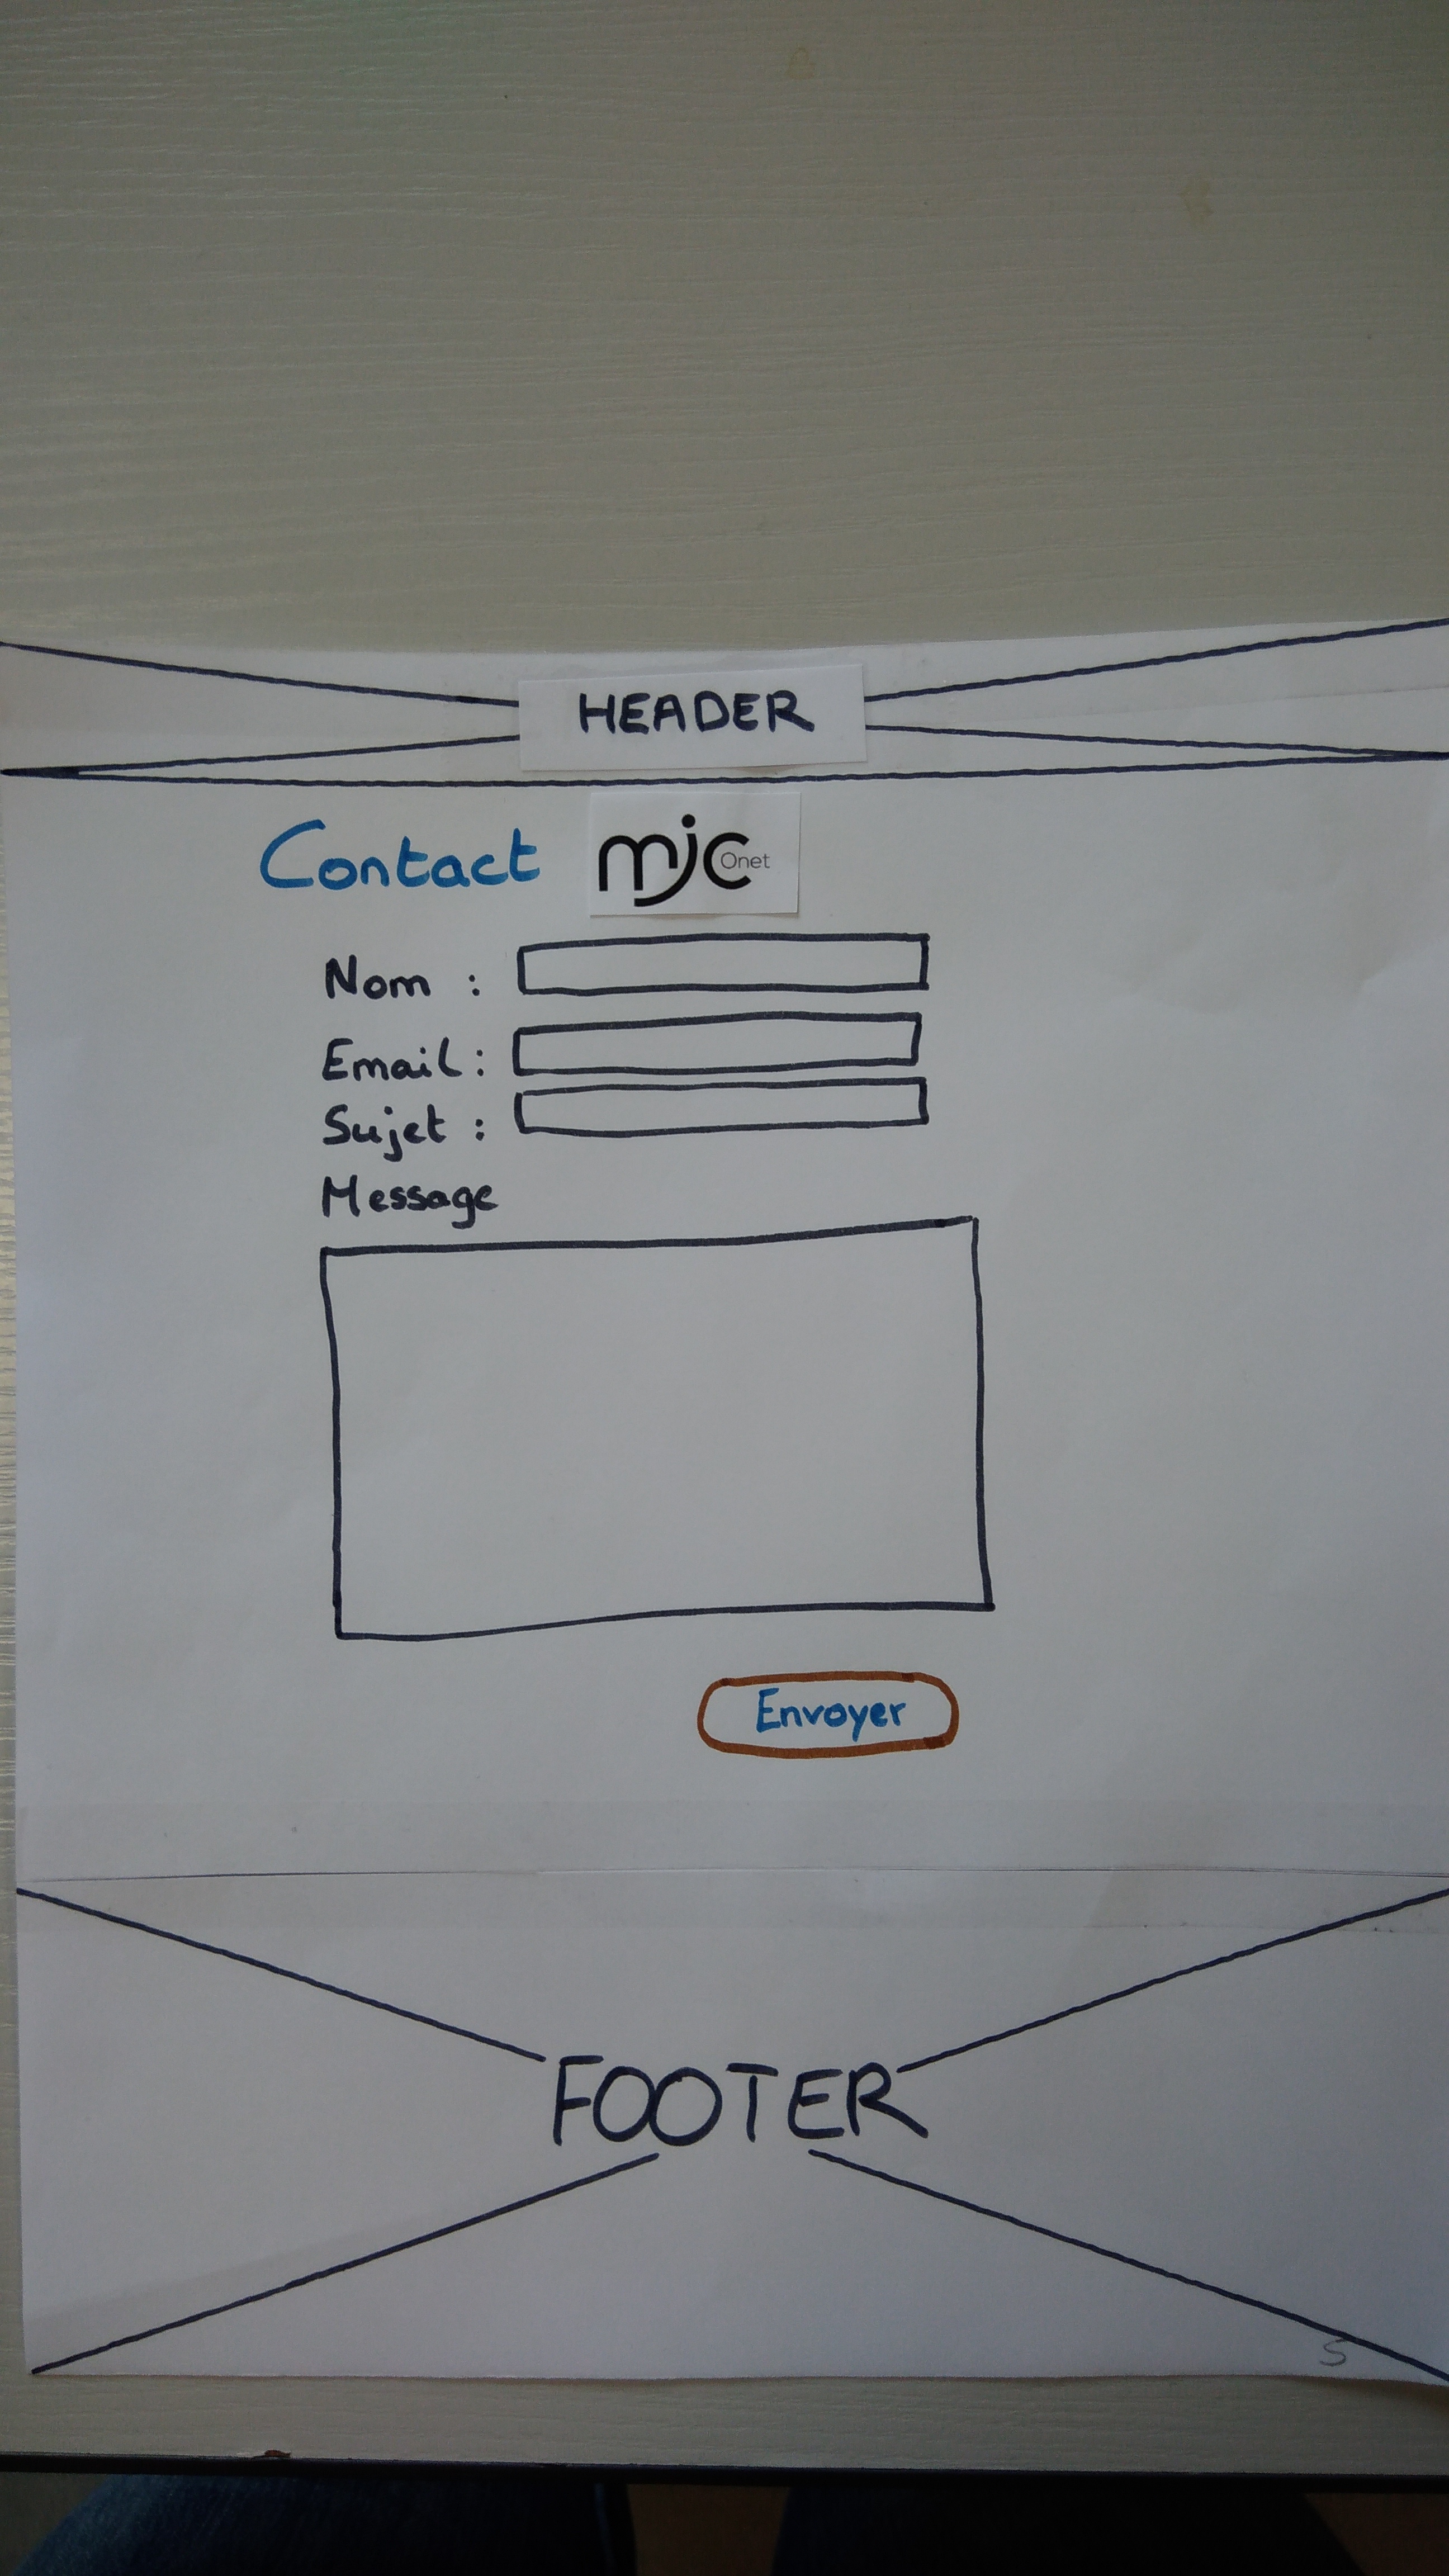 HEADER
Contact mjc Onet
Nom :
Email :
Sujet :
Message
Envoyer
FOOTER
5